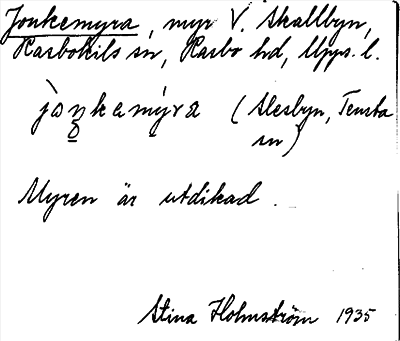 Jonkemyra, myr V. Skallbyn,
Rasbokils sn, Rasbo hd, Upps. l.
jo̱ŋkemy̱ra (Alesbyn, Tensta
sn)
Myren är utdikad.
Stina Holmström 1935